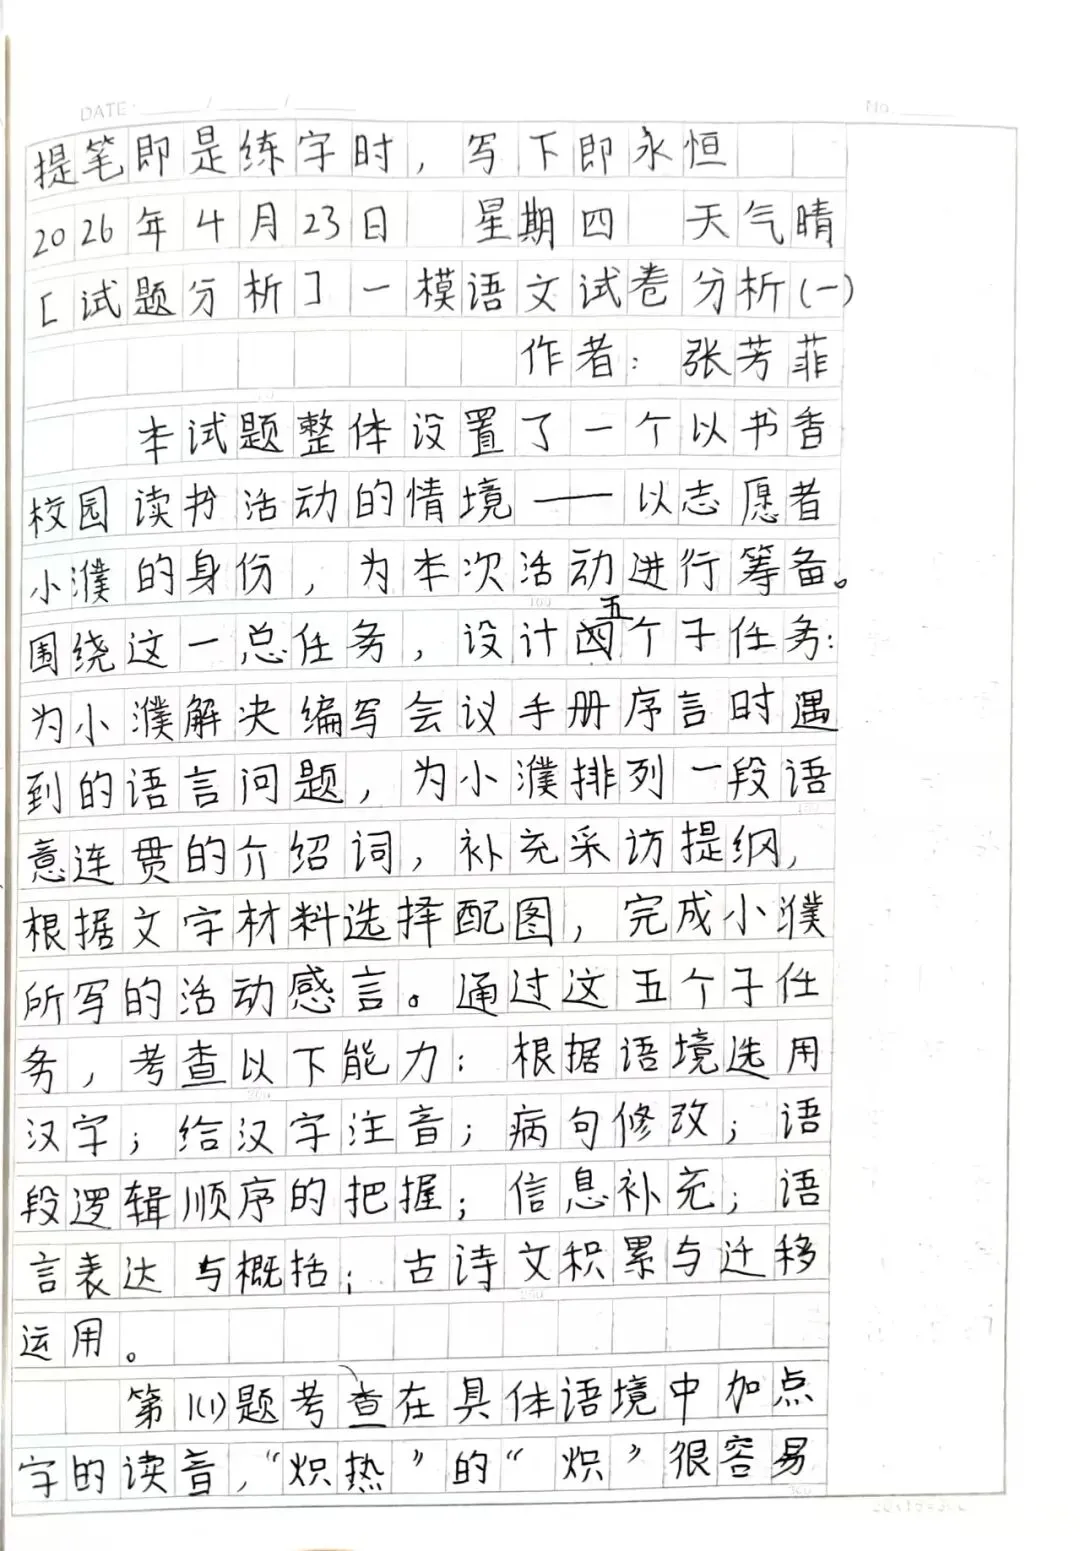 DATE / /
No
提笔即是练字时，写下即永恒
2026年4月23日 星期四 天气晴
[试题分析]一模语文试卷分析(一)
作者：张芳菲
本试题整体设置了一个以书香
校园读书活动的情境——以志愿者
小濮的身份，为本次活动进行筹备。
围绕这一总任务，设计五个子任务：
为小濮解决编写会议手册序言时遇
到的语言问题，为小濮排列一段语
意连贯的介绍词，补充采访提纲，
根据文字材料选择配图，完成小濮
所写的活动感言。通过这五个子任
务，考查以下能力：根据语境选用
汉字；给汉字注音；病句修改；语
段逻辑顺序的把握；信息补充；语
言表达与概括；古诗文积累与迁移
运用。
第1(1)题考查在具体语境中加点
字的读音，“炽热”的“炽”很容易